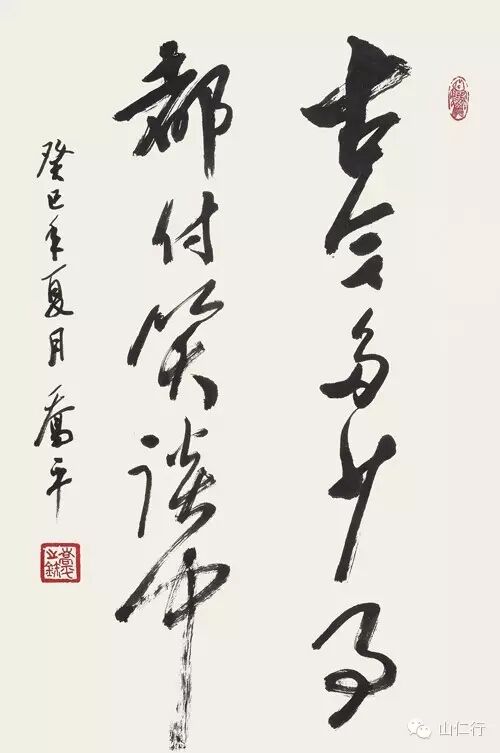 古今多少事
都付笑谈中
癸巳年夏月 喬平
山仁行